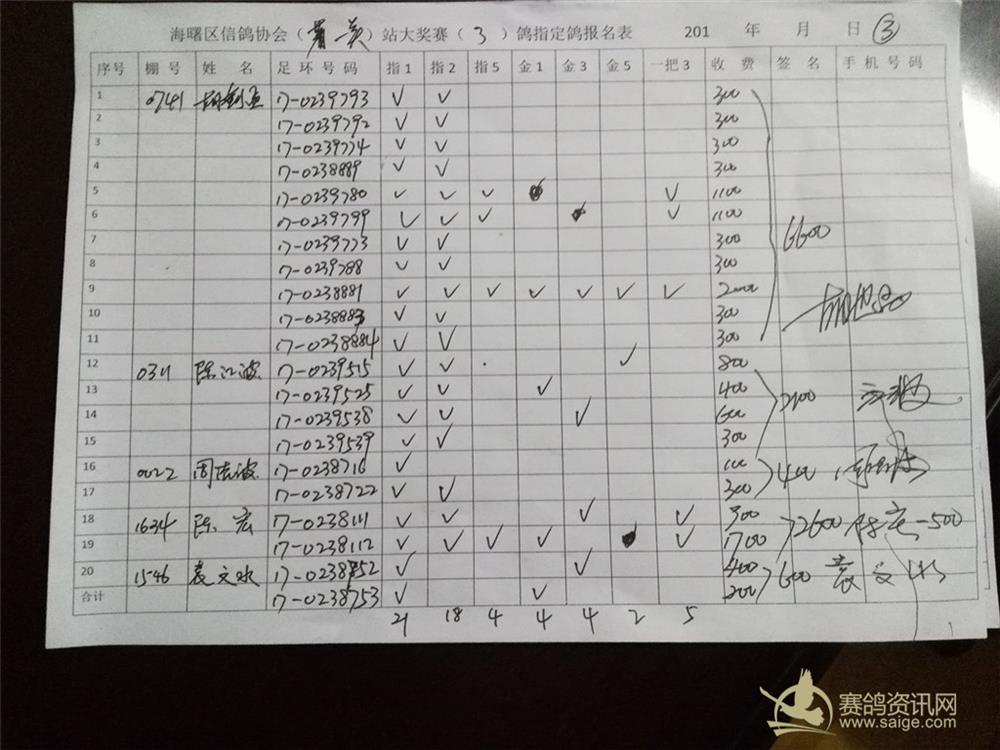 海曙区信鸽协会（ ）站大奖赛（3）鸽指定鸽报名表 201 年 月 日 ③
序号 棚号 姓 名 足环号码 指1 指2 指5 金1 金3 金5 一把3 收费 签名 手机号码
1 0741 17-0239793 ✓ ✓ 300
2 17-0239792 ✓ ✓ 300
3 17-0239774 ✓ ✓ 300
4 17-0238889 ✓ ✓ 300
5 17-0239780 ✓ ✓ ✓ ✓ 1100
6 17-0239799 ✓ ✓ ✓ ✓ 1100
7 17-0239773 ✓ ✓ 300 6600
8 17-0239788 ✓ ✓ 300
9 17-0238881 ✓ ✓ ✓ ✓ ✓ ✓ ✓ 2000
10 17-0238883 ✓ ✓ 300
11 17-0238884 ✓ ✓ 300
12 0311 陈江波 17-0239515 ✓ ✓ ✓ 800
13 17-0239525 ✓ ✓ ✓ 400 2100
14 17-0239538 ✓ ✓ ✓ 600
15 17-0239539 ✓ ✓ 300
16 0022 17-0238716 ✓ 100 400
17 17-0238722 ✓ ✓ 300
18 1634 陈宏 17-0238111 ✓ ✓ ✓ ✓ 900 2600 陈宏-500
19 17-0238112 ✓ ✓ ✓ ✓ ✓ 1700
20 1546 袁文水 17-0238752 ✓ ✓ 400 600 袁文水
合计 17-0238753 ✓ ✓ 200
21 18 4 4 4 2 5
赛鸽资讯网
www.saige.com